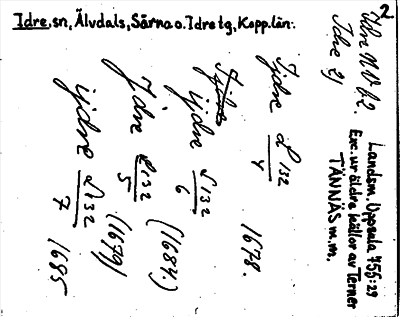 2
Idre, sn, Älvdals, Särna o. Idre tg, Kopp.län:
Idre N V f2.
Idre 2)
Landsm. Uppsala 455:29
Exc. ur äldre källor av Terner
TÄNNÄS m.m.
Ijdre L132/4 1678.
ijdre L132/6 (1684.)
Jdre L132/5 (1679)
ijdre L132/7 1685